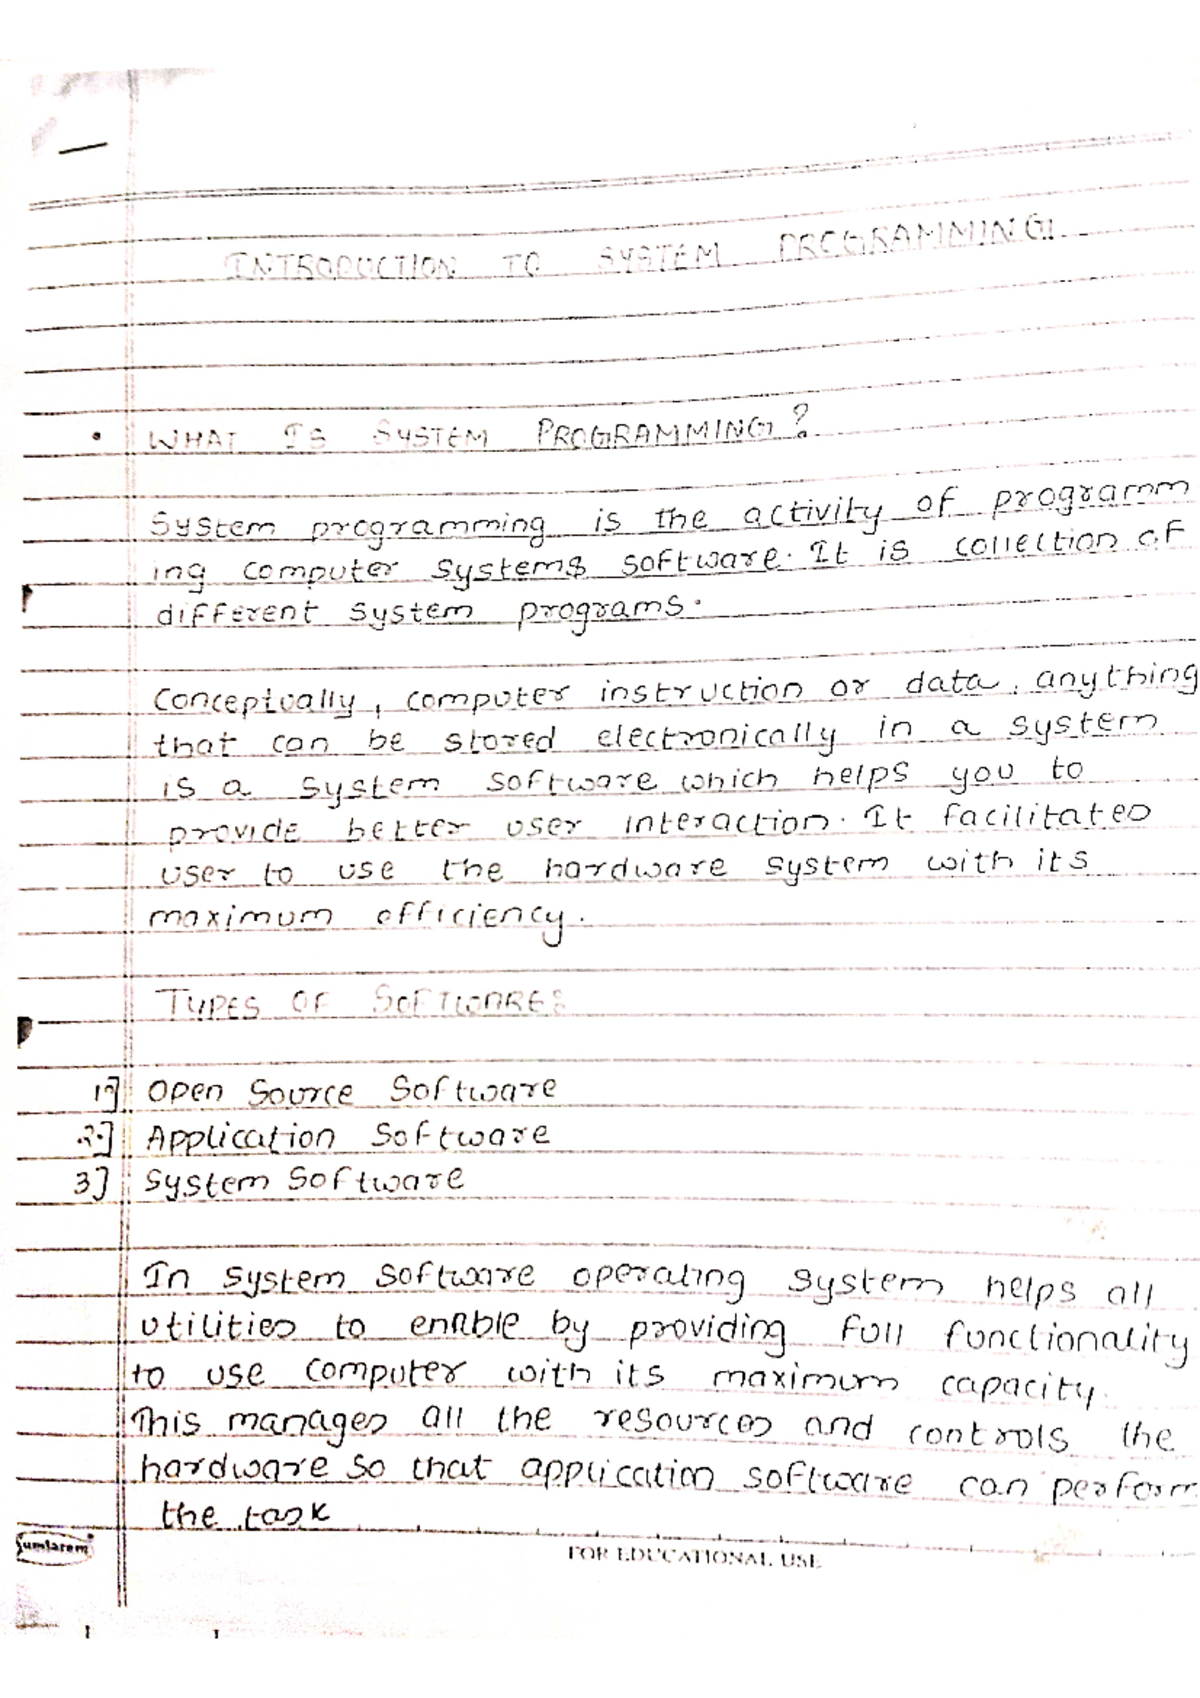 INTRODUCTION TO SYSTEM PROGRAMMING
• WHAT IS SYSTEM PROGRAMMING?
System programming is the activity of programm
ing computer systems software. It is collection of
different system programs.
Conceptually, computer instruction or data, anything
that can be stored electronically in a system
is a system software which helps you to
provide better user interaction. It facilitates
user to use the hardware system with its
maximum efficiency.
TYPES OF SOFTWARES
1] Open Source Software
2] Application Software
3] System Software
In system software operating system helps all
utilities to enable by providing full functionality
to use computer with its maximum capacity.
This manages all the resources and controls the
hardware so that application software can perform
the task
Sundaram
FOR EDUCATIONAL USE